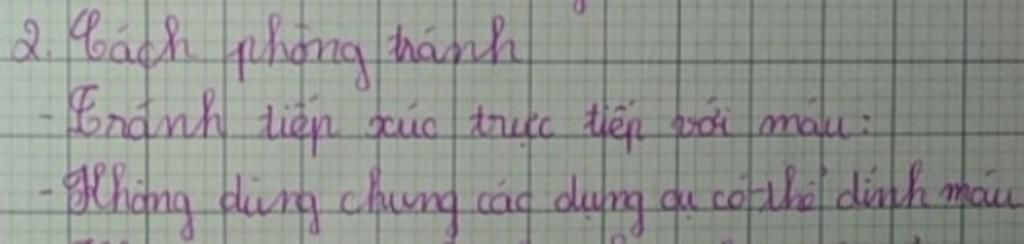 2. Cách phòng tránh
- Tránh tiếp xúc trực tiếp với máu:
- Không dùng chung các dụng cụ có thể dính máu